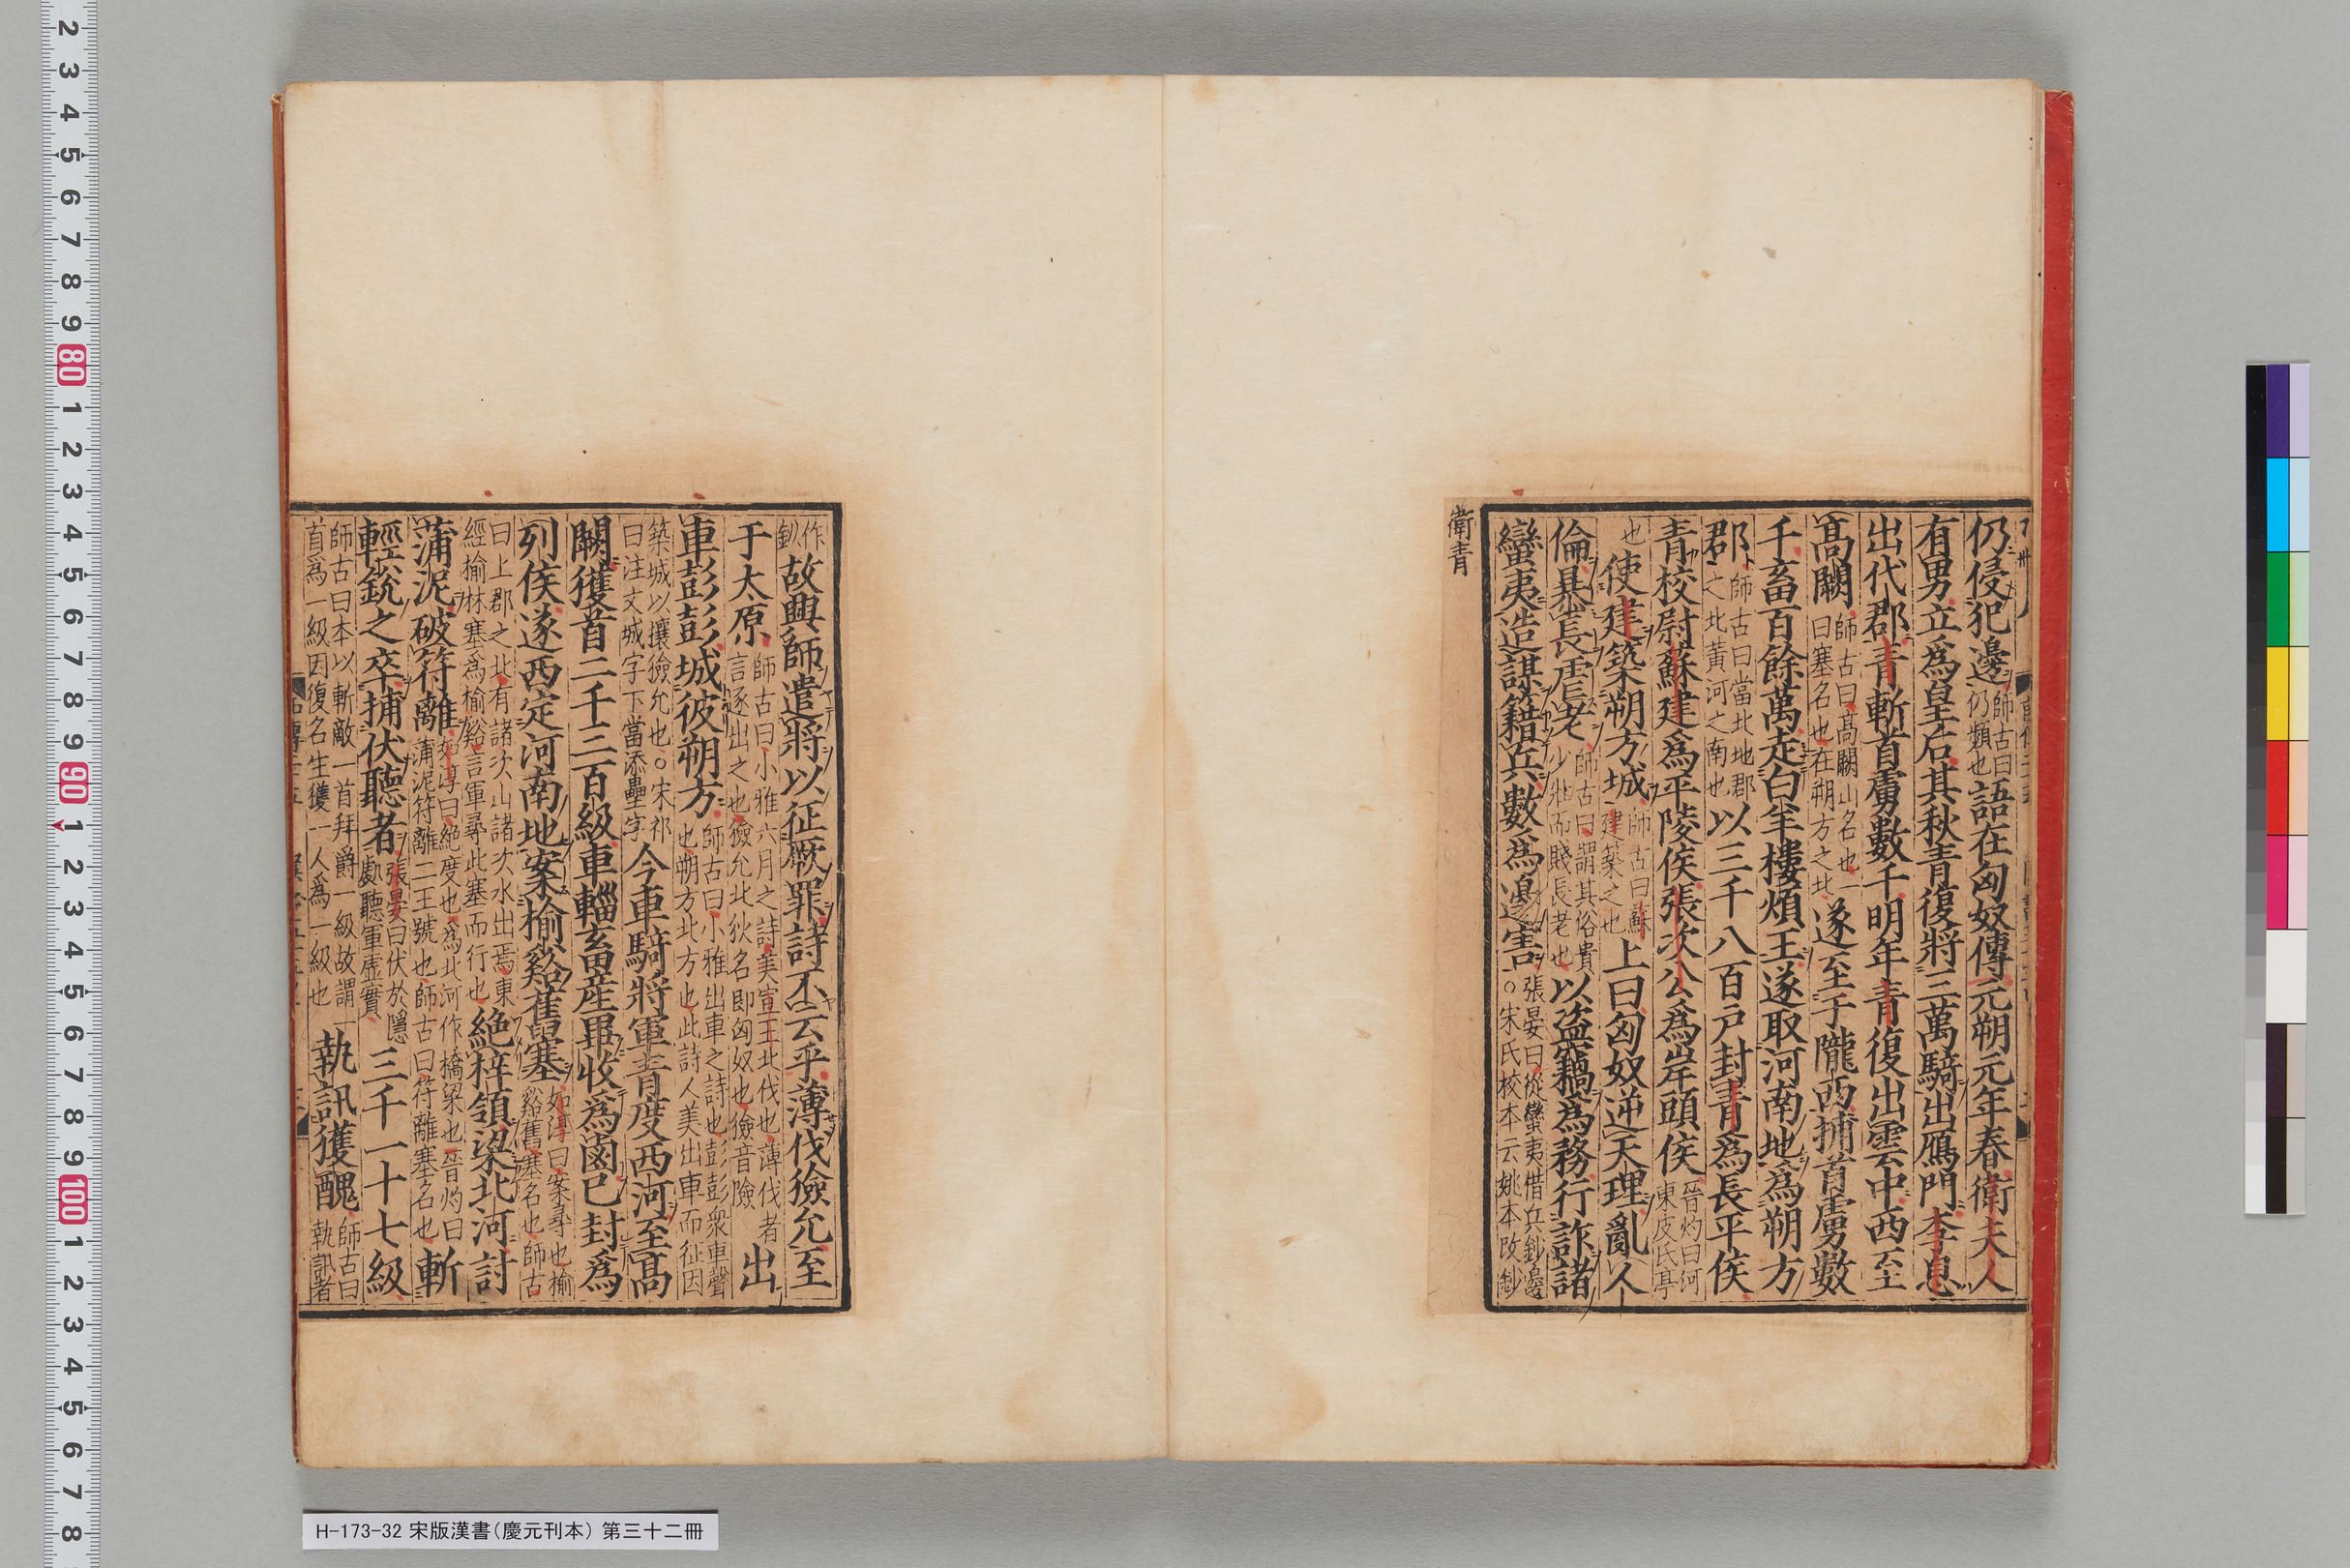 仍侵犯邊師古曰仍頻也語在匈奴傳元朔元年春衛夫人
有男立爲皇后其秋青復將三萬騎出鴈門李息
出代郡青斬首虜數千明年青復出雲中西至
高闕師古曰高闕山名也一曰塞名也在朔方之北遂至于隴西捕首虜數
千畜百餘萬走白羊樓煩王遂取河南地爲朔方
郡師古曰當北地郡之北黃河之南也以三千八百戶封青爲長平侯
青校尉蘇建爲平陵侯張次公爲岸頭侯晉灼曰河東皮氏亭
也使建築朔方城師古曰蘇建築之也上曰匈奴逆天理亂人
倫暴長虐老師古曰謂其俗貴少壯而賤長老也以盜竊爲務行詐諸
蠻夷造謀籍兵數爲邊害張晏曰從蠻夷借兵鈔邊○宋氏校本云姚本改鈔
衛青
作鈔故興師遣將以征厥罪詩不云乎薄伐獫允至
于太原師古曰小雅六月之詩美宣王北伐也薄伐者言逐出之也獫允北狄名即匈奴也獫音險出
車彭彭城彼朔方師古曰小雅出車之詩也彭彭衆車聲也朔方北方也此詩人美出車而征因
築城以攘獫允也○宋祁曰注文城字下當添壘字今車騎將軍青度西河至高
闕獲首二千三百級車輜畜產畢收爲鹵已封爲
列侯遂西定河南地案榆谿舊塞如淳曰案尋也榆谿舊塞名也師古
曰上郡之北有諸次山諸次水出焉東經榆林塞爲榆谿言軍尋此塞而行也絕梓領梁北河討
蒲泥破符離如淳曰絕度也爲北河作橋梁也晉灼曰蒲泥符離二王號也師古曰符離塞名也斬
輕銳之卒捕伏聽者張晏曰伏於隱處聽軍虛實三千一十七級
師古曰本以斬敵一首拜爵一級故謂一首爲一級因復名生獲一人爲一級也執訊獲醜師古曰執訊者
H-173-32 宋版漢書（慶元刊本） 第三十二冊